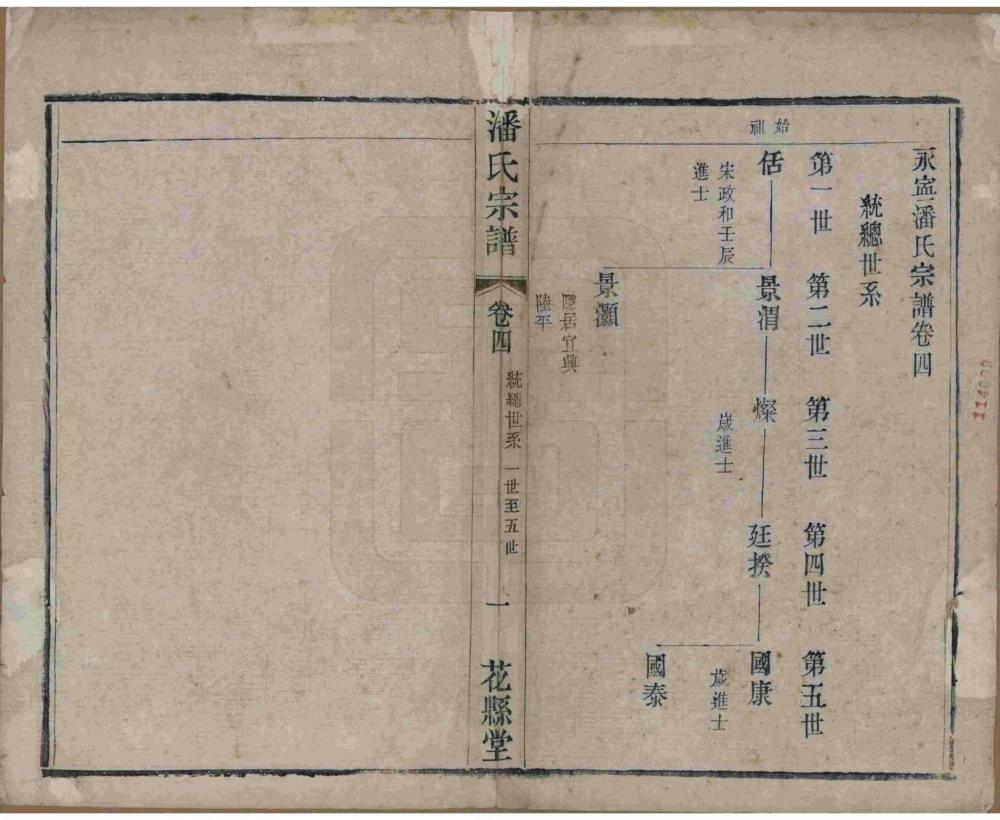 永寧潘氏宗譜卷四
統總世系
第一世 第二世 第三世 第四世 第五世
始祖
佸 景渭 燦 廷揆 國康
宋政和壬辰
進士
歲進士
歲進士
國泰
景灝
隱居宜興
陸平
潘氏宗譜 卷四 統總世系 一世至五世 一 花縣堂
114909